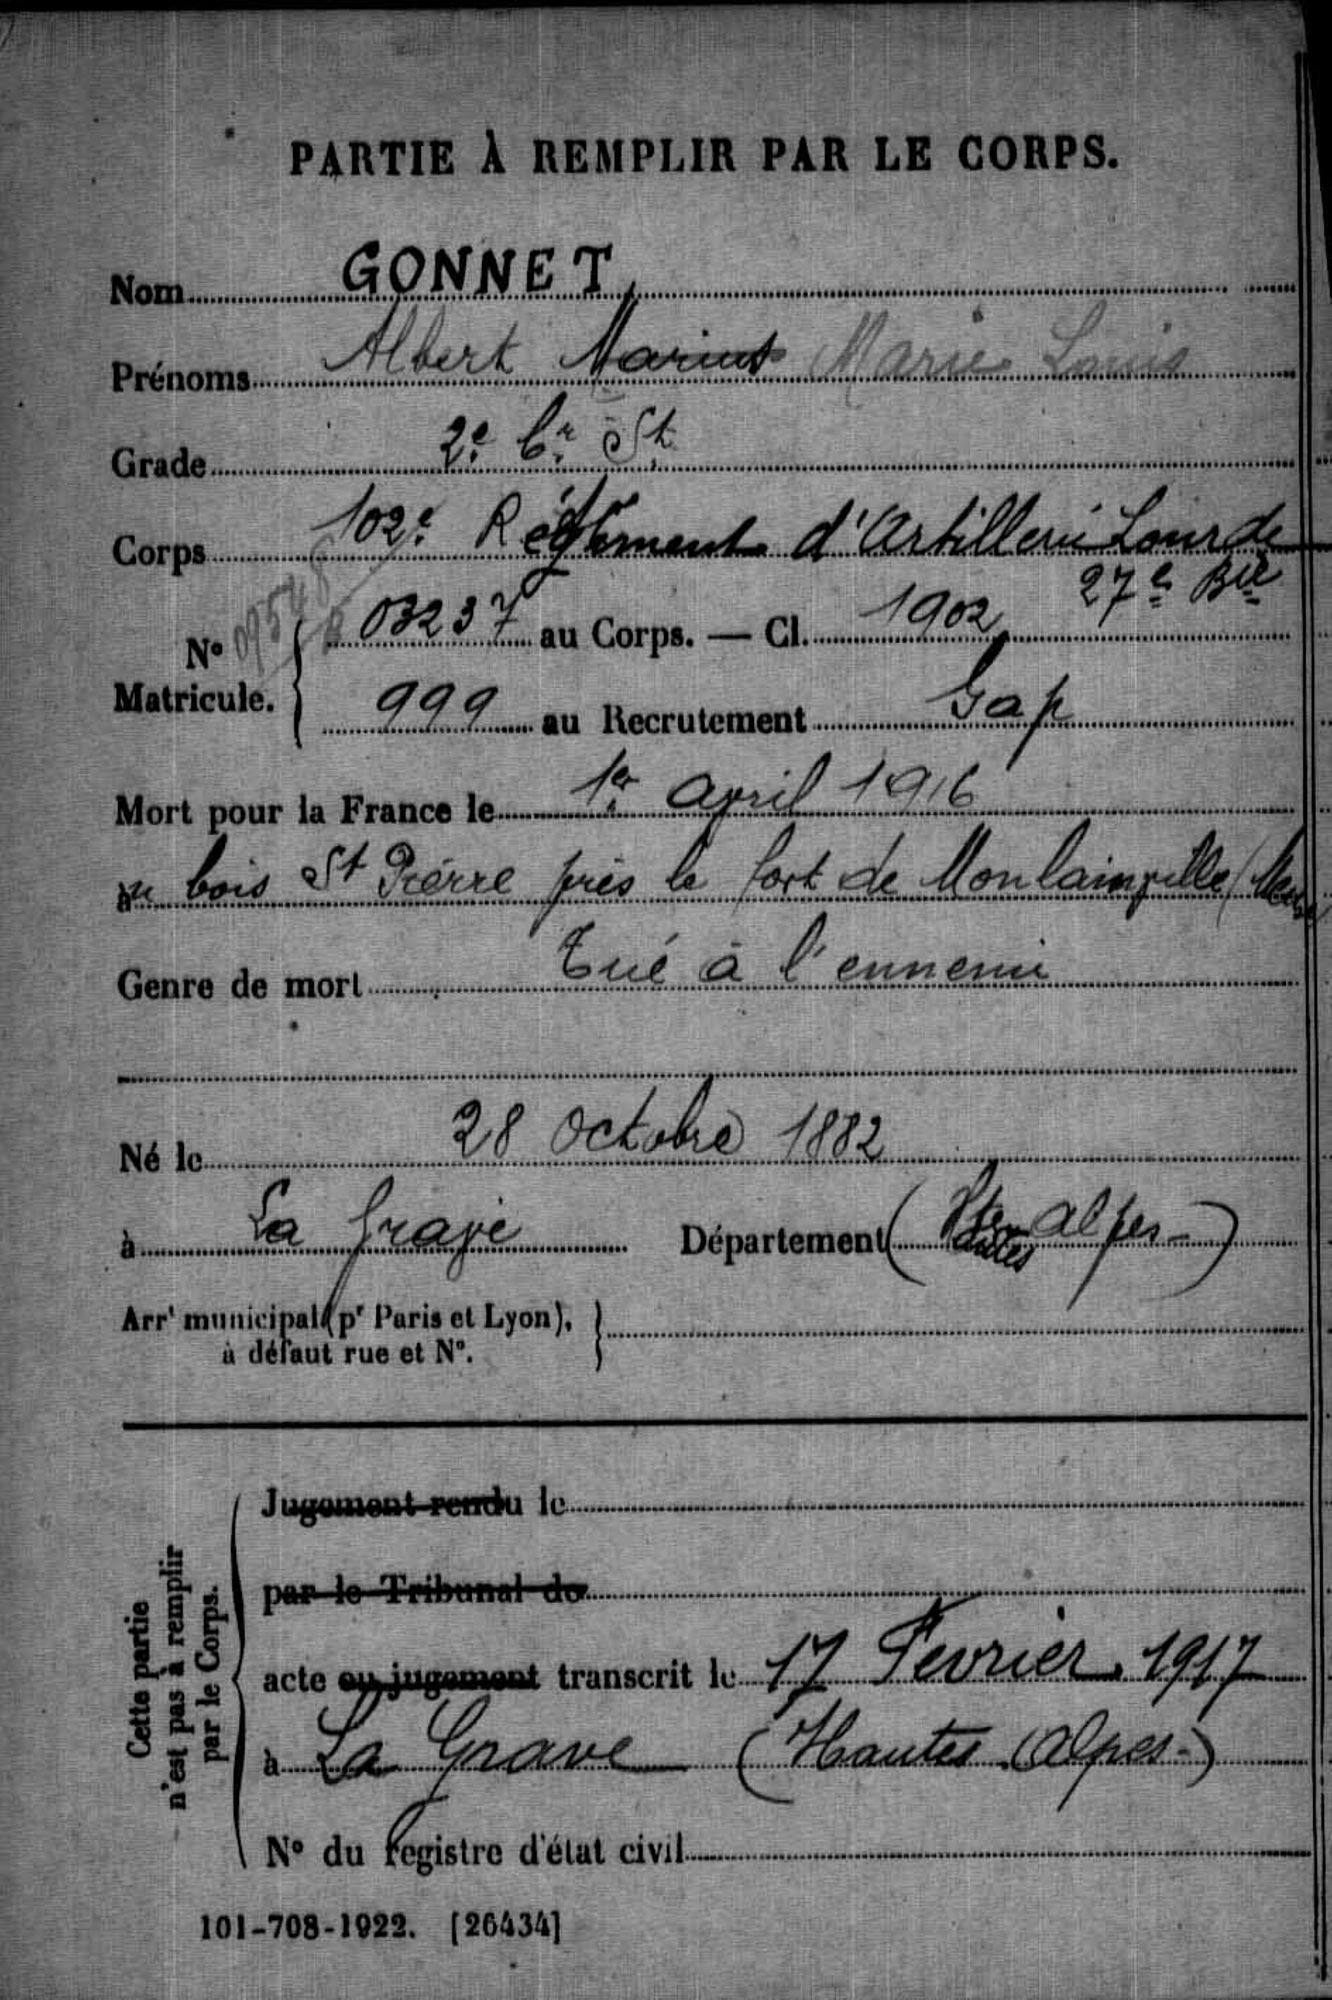 PARTIE À REMPLIR PAR LE CORPS.
Nom GONNET
Prénoms Albert Marius Marie Louis
Grade 2e Cr St
Corps 102e Régiment d'Artillerie Lourde
27e Bie
095488
No Matricule. 03237 au Corps. — Cl. 1902
999 au Recrutement Gap
Mort pour la France le 1er april 1916
au bois St Pierre près le fort de Moulainville (Meuse
Genre de mort Tué à l'ennemi
Né le 28 Octobre 1882
à La Grave Département (Hautes Alpes-)
Arrt municipal (pr Paris et Lyon),
à défaut rue et No.
Cette partie
n'est pas à remplir
par le Corps.
Jugement rendu le
par le Tribunal de
acte ou jugement transcrit le 17 Fevrier 1917
à La Grave (Hautes Alpes-)
No du registre d'état civil
101-708-1922. [26434]